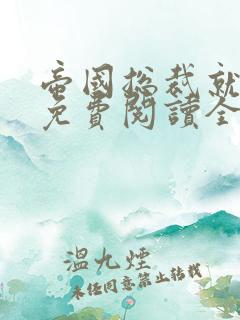 帝國總裁就
免費閱讀全
溫九煙
未经同意禁止转载